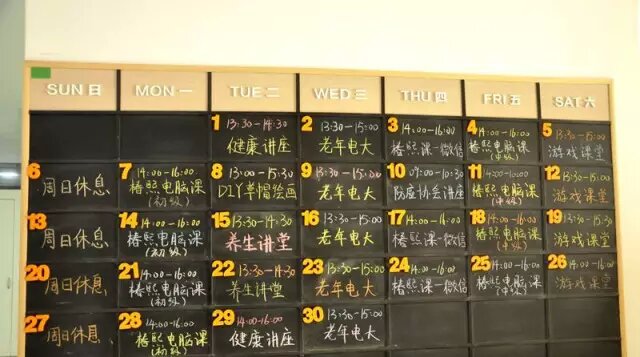 SUN 日 MON 一 TUE 二 WED 三 THU 四 FRI 五 SAT 六
1 13:30-14:30 2 13:30-15:00 3 14:00-15:00 4 14:00-16:00 5 13:30-15:00
健康讲座 老年电大 椿熙课-微信 椿熙电脑课 游戏课堂
(中级)
6 7 14:00-16:00 8 13:30-15:00 9 13:30-15:00 10 09:00-10:30 11 14:00-16:00 12 13:30-15:00
周日休息 椿熙电脑课 DIY草帽绘画 老年电大 椿熙电脑课 游戏课堂
(初级) (中级)
13 14 14:00-16:00 15 13:30-14:30 16 13:30-15:00 17 14:00-15:00 18 14:00-16:00 19 13:30-15:00
周日休息 椿熙电脑课 养生讲堂 老年电大 椿熙课-微信 椿熙电脑课 游戏课堂
(初级) (中级)
20 21 14:00-16:00 22 13:30-14:30 23 13:30-15:00 24 14:00-15:00 25 14:00-16:00 26 14:00-16:00
周日休息 椿熙电脑课 养生讲堂 老年电大 椿熙课-微信 椿熙电脑课 游戏课堂
(初级) (中级)
27 28 14:00-16:00 29 14:00-16:00 30 13:30-15:00
周日休息 椿熙电脑课 健康讲座 老年电大
(初级)